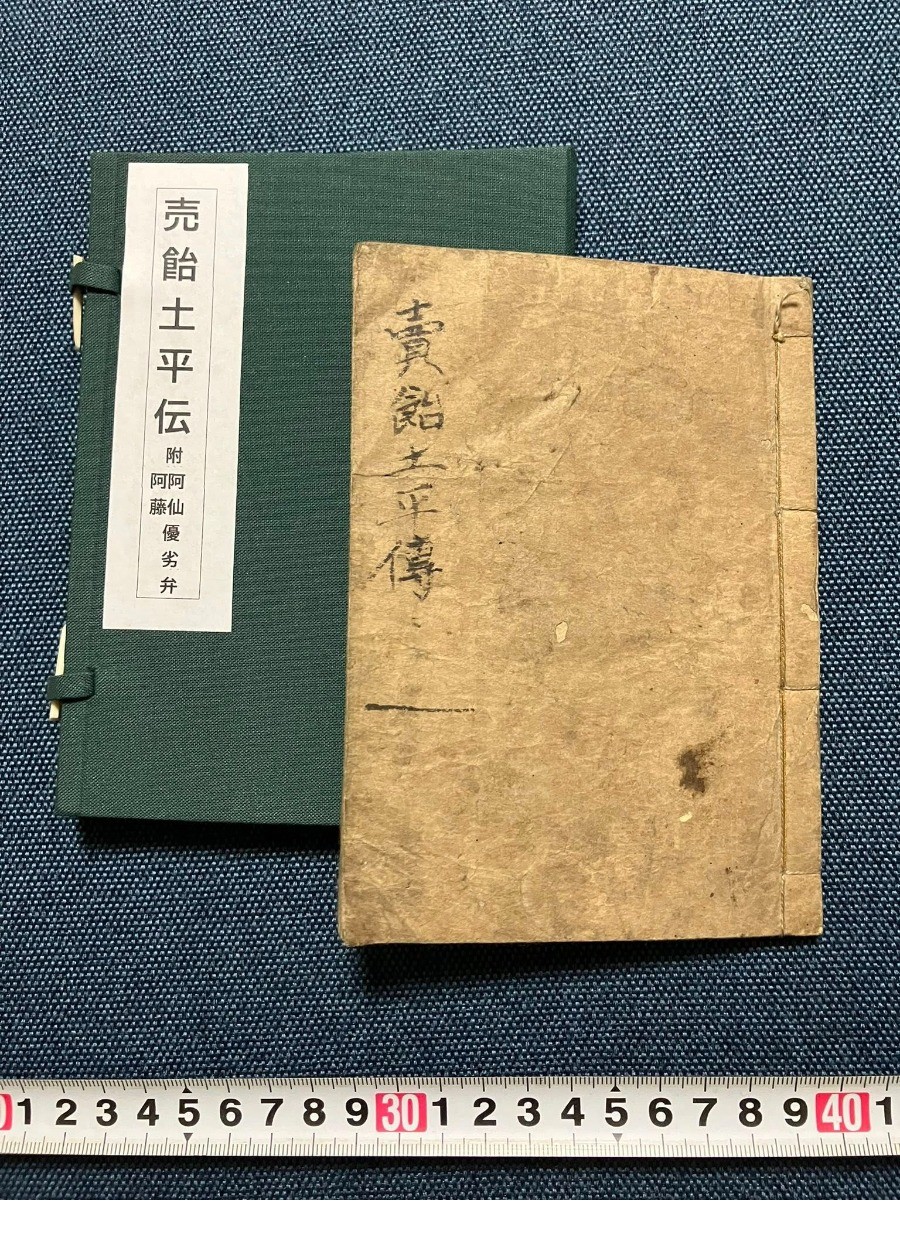 売飴土平伝
附阿仙阿藤優劣弁
賣飴土平傳
一
0 1 2 3 4 5 6 7 8 9 30 1 2 3 4 5 6 7 8 9 40 1